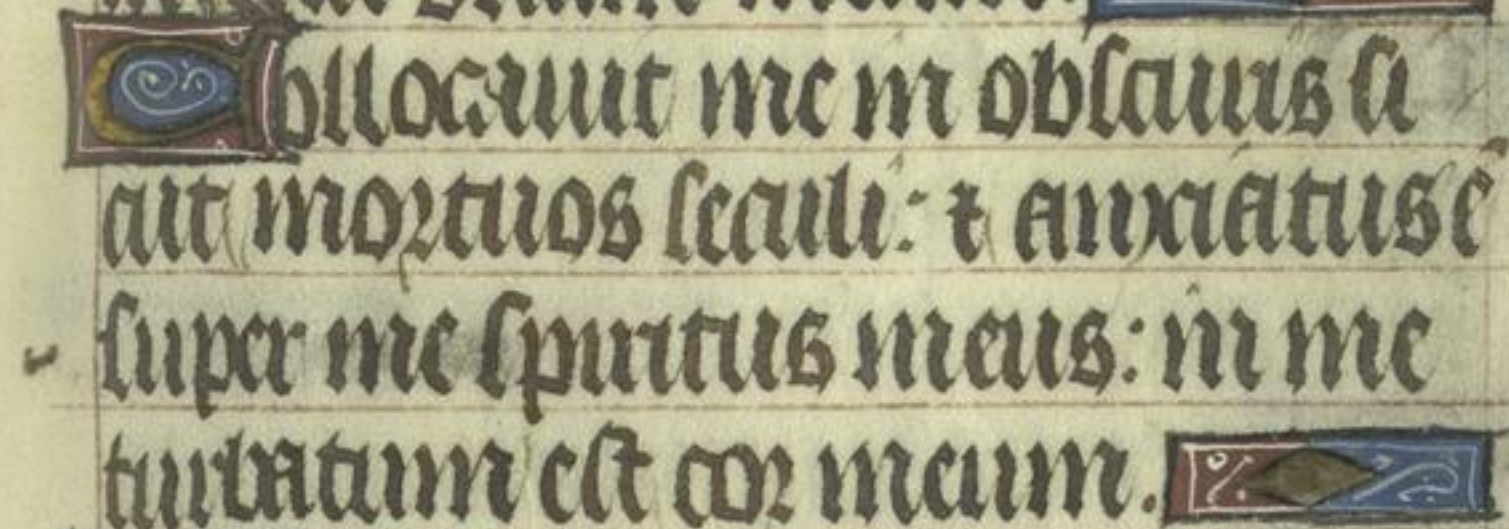 in terra vitam meam.
Collocauit me in obscuris si
cut mortuos seculi: & anxiatus ē
super me spiritus meus: in me
turbatum est cor meum.